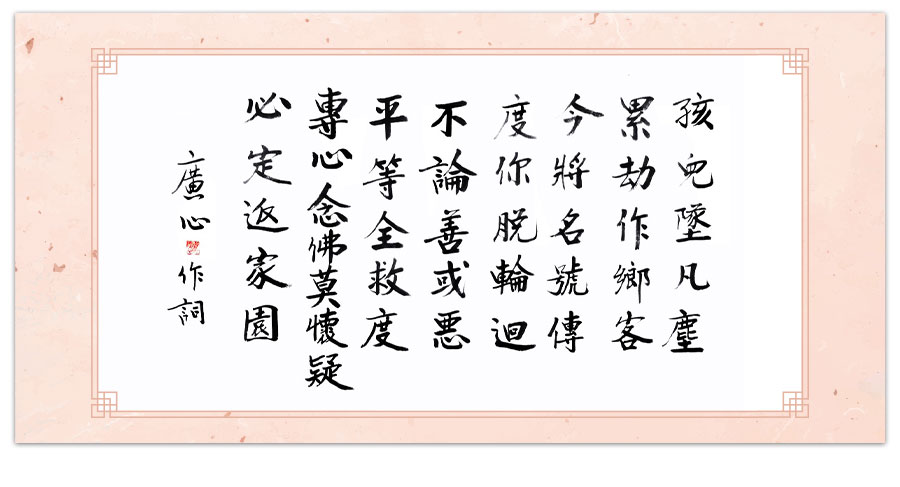 孩兒墜凡塵
累劫作鄉客
今將名號傳
度你脫輪迴
不論善或惡
平等全救度
專心念佛莫懷疑
必定返家園
廣心作詞